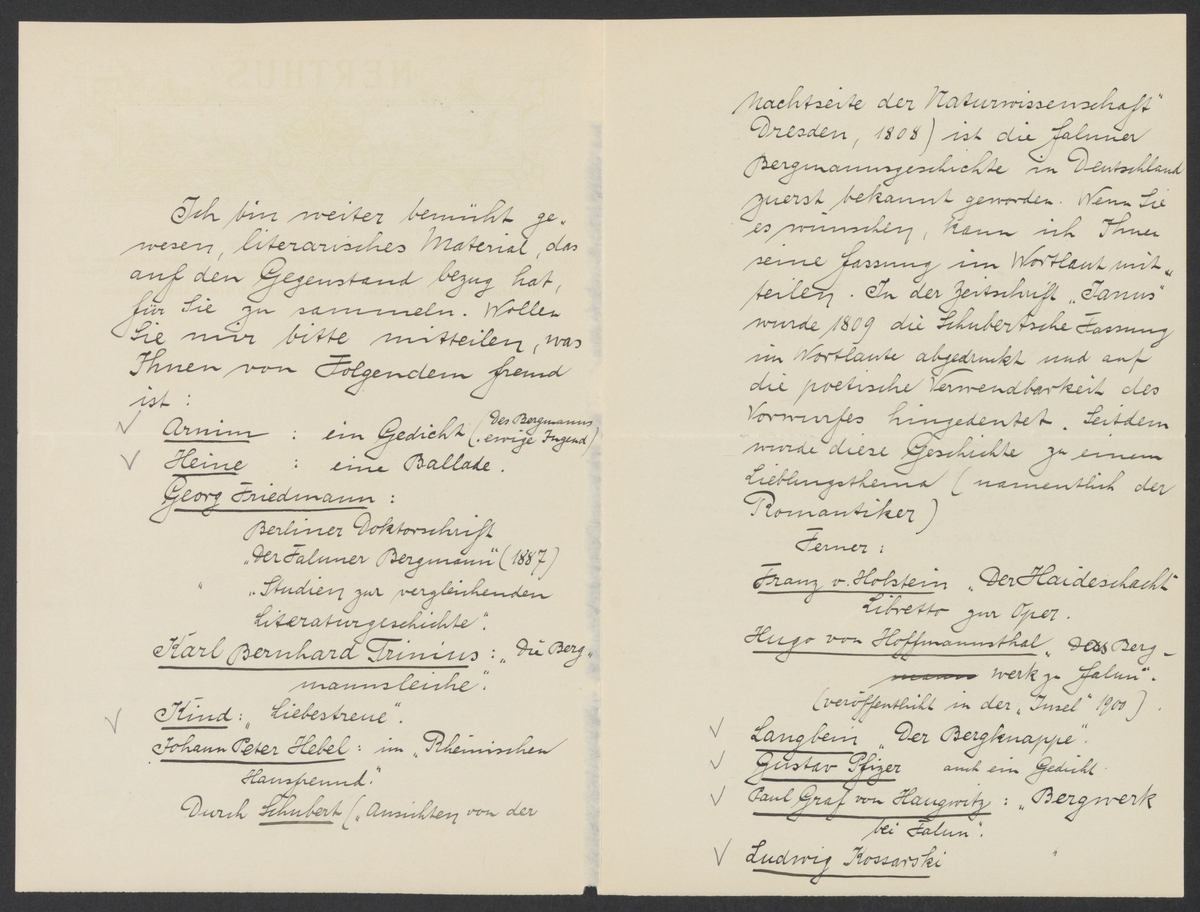 Ich bin weiter bemüht ge„
wesen, literarisches Material, das
auf den Gegenstand bezug hat,
für Sie zu sammeln. Wollen
Sie mir bitte mitteilen, was
Ihnen von Folgendem fremd
ist:
✓ Arnim : ein Gedicht (Des Bergmanns
ewige Jugend)
✓ Heine : eine Ballade.
Georg Friedmann:
Berliner Doktorschrift
„Der Faluner Bergmann" (1887)
" „Studien zur vergleichenden
Literaturgeschichte".
Karl Bernhard Trinius: „Die Berg„
mannsleiche".
✓ Kind: „Liebestreue".
Johann Peter Hebel: im „Rheinischen
Hausfreund."
Durch Schubert („Ansichten von der
Nachtseite der Naturwissenschaft"
Dresden, 1808) ist die Faluner
Bergmannsgeschichte in Deutschland
zuerst bekannt geworden. Wenn Sie
es wünschen, kann ich Ihnen
seine Fassung im Wortlaut mit„
teilen. In der Zeitschrift „Janus"
wurde 1809 die Schubertsche Fassung
im Wortlaute abgedruckt und auf
die poetische Verwendbarkeit des
Vorwurfes hingedeutet. Seitdem
wurde diese Geschichte zu einem
Lieblingsthema (namentlich der
Romantiker)
Ferner:
Franz v. Holstein „Der Haideschacht"
Libretto zur Oper.
Hugo von Hoffmannsthal „Das Berg-
mann werk zu Falun".
(veröffentlicht in der „Insel" 1900).
✓ Langbein „Der Bergknappe".
✓ Gustav Pfizer auch ein Gedicht.
✓ Paul Graf von Haugwitz: „Bergwerk
bei Falun".
✓ Ludwig Kossarski
NERTHUS